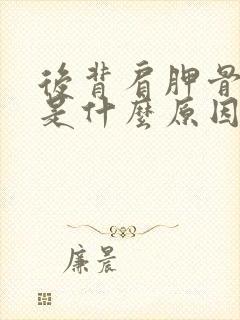 後背肩胛骨
是什麼原因
廉晨